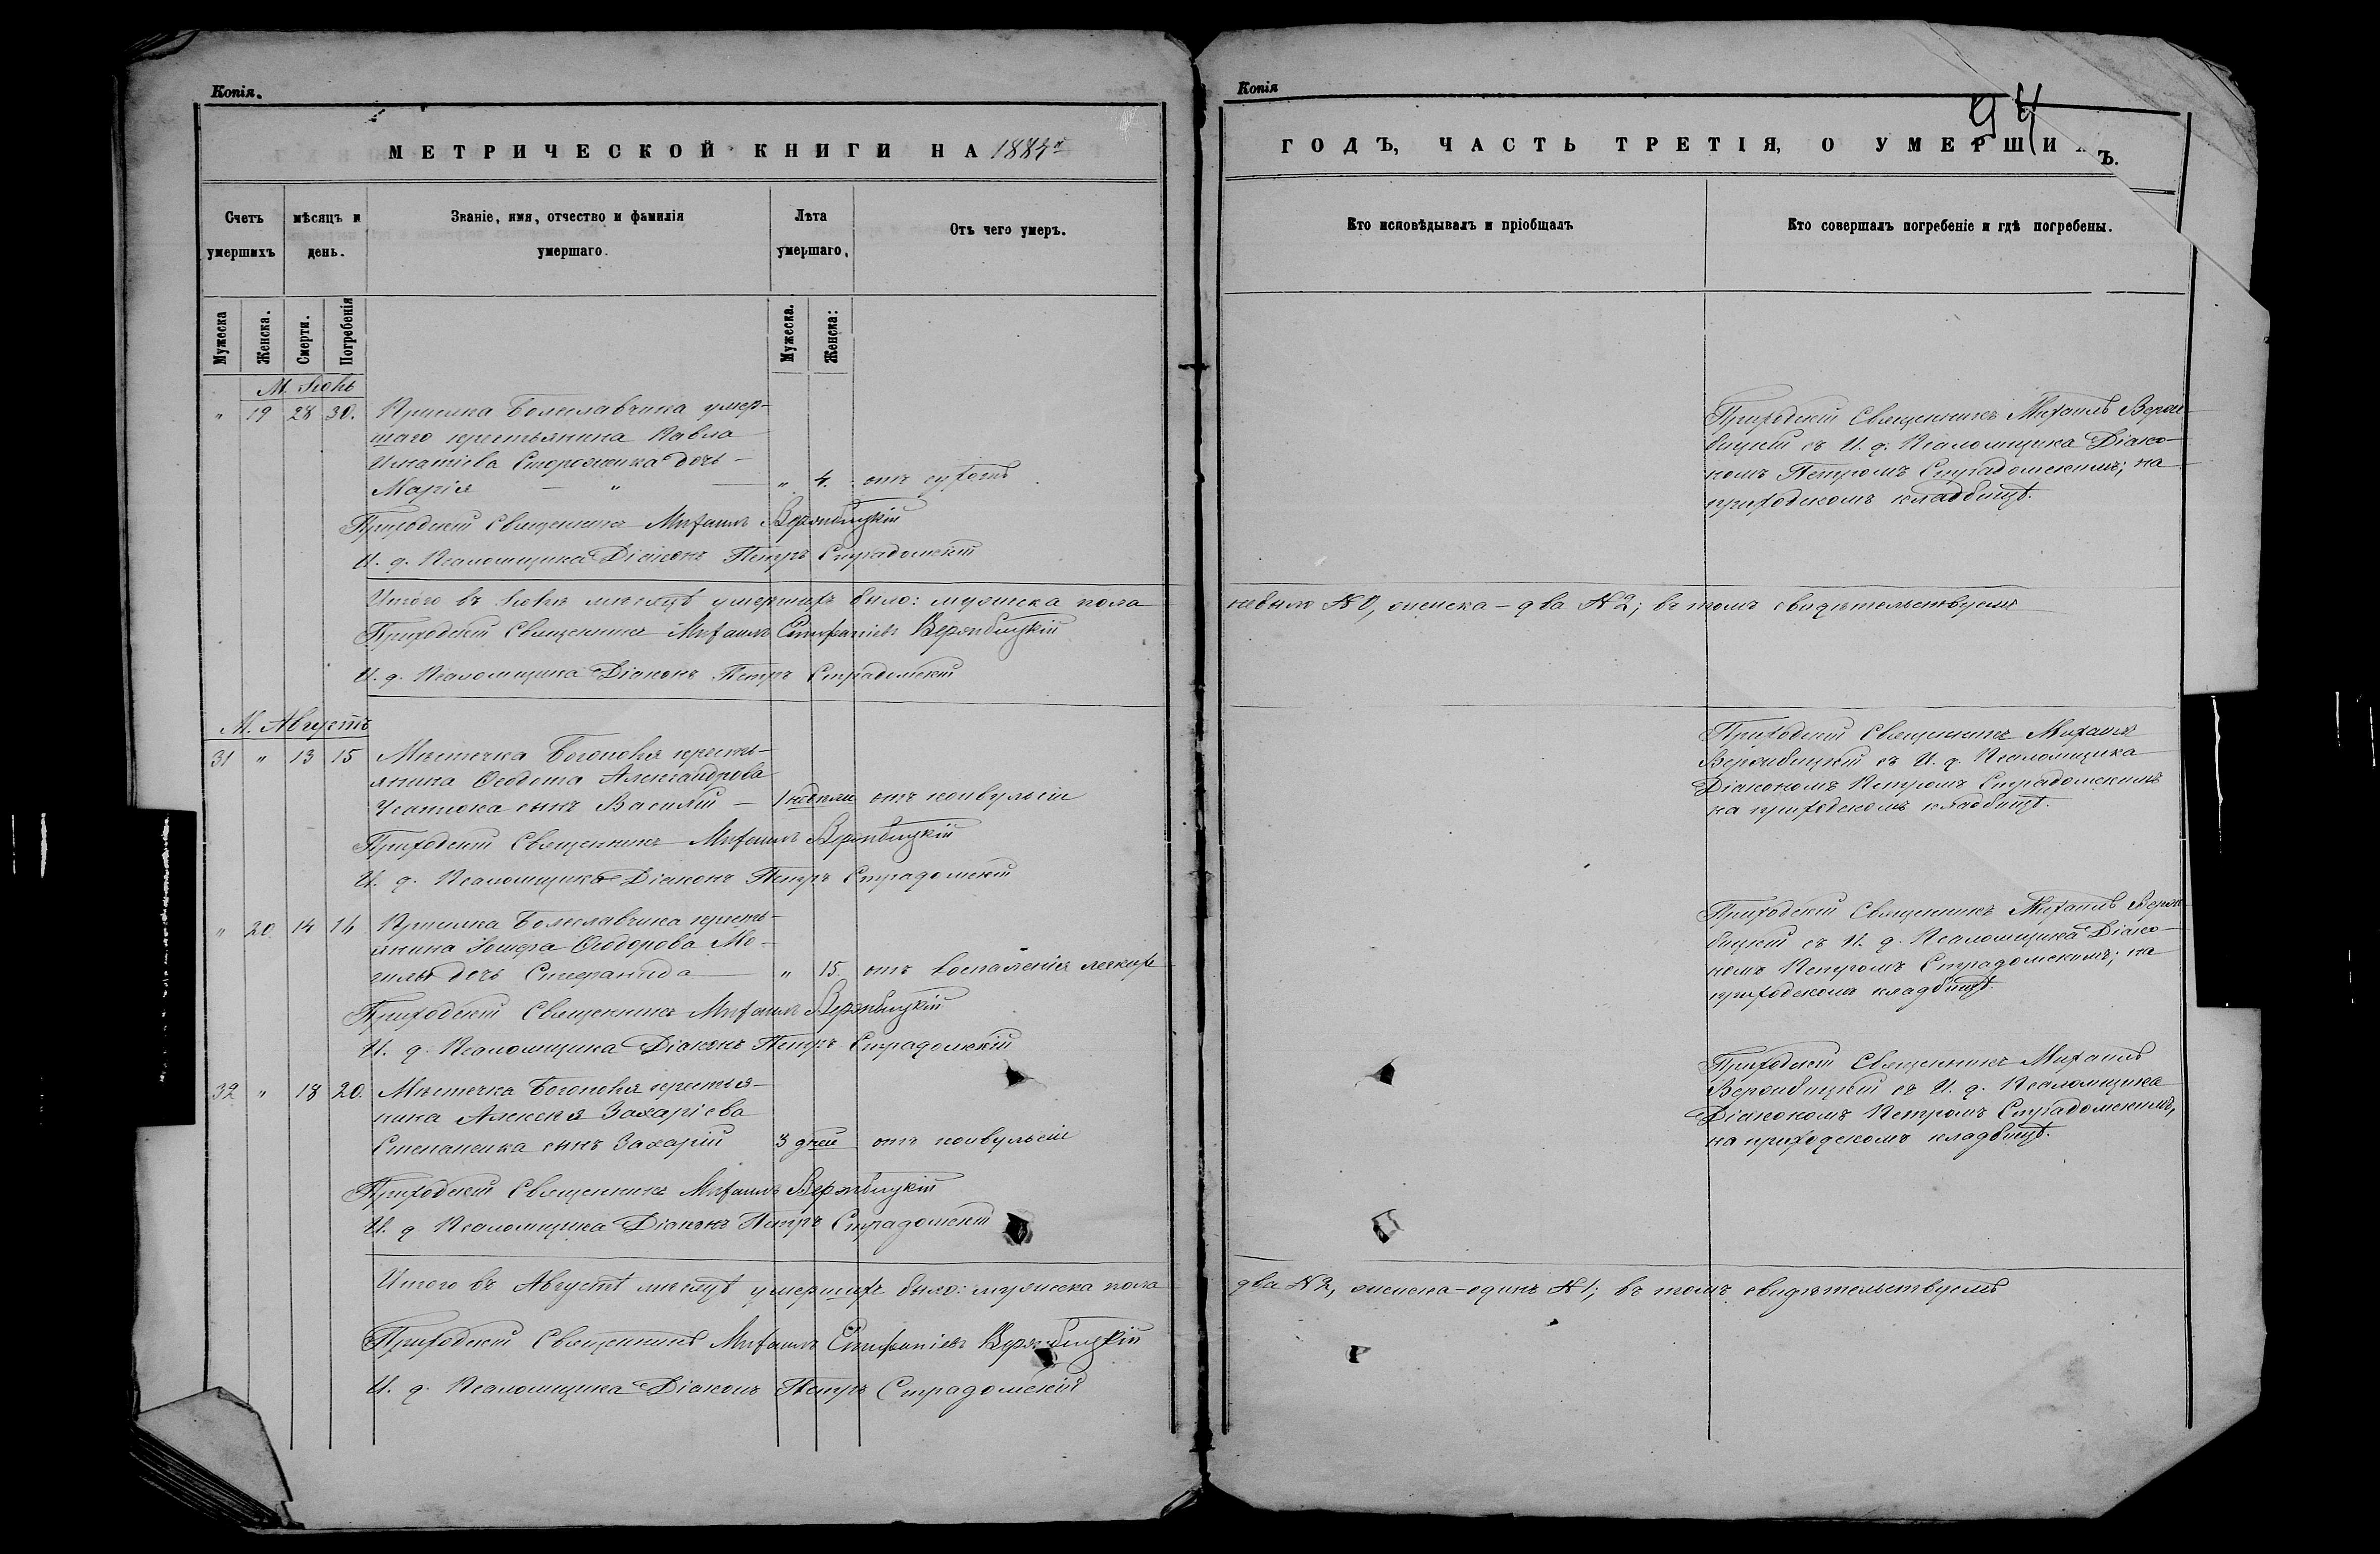 Копія.
МЕТРИЧЕСКОЙ КНИГИ НА 1884й
Счетъ умершихъ
мѣсяцъ и день.
Званіе, имя, отчество и фамилія умершаго.
Лѣта умершаго.
Отъ чего умеръ.
Мужеска
Женска.
Смерти.
Погребенія
Мужеска.
Женска:
М. Іюль
" 19 28 30. Присѣлка Болеславчика умер-
шаго крестьянина Павла
Игнатіева Сторожика дочь
Марія — " — " 4. отъ сухотъ
Приходскій Священникъ Михаилъ Вержбицкій
И. д. Псаломщика Діаконъ Петръ Страдомскій
Итого въ Іюлѣ мѣсяцѣ умершихъ было: мужеска пола
Приходскій Священникъ Михаилъ Стефаніевъ Вержбицкій
И. д. Псаломщика Діаконъ Петръ Страдомскій
М. Августъ
31 " 13 15 Мѣстечка Богополя кресть-
янина Ѳеодота Александрова
сынъ Василій — 1 недѣли отъ конвульсіи
Приходскій Священникъ Михаилъ Вержбицкій
И. д. Псаломщика Діаконъ Петръ Страдомскій
" 20. 14 16 Присѣлка Болеславчика кресть-
янина Іосифа Ѳеодорова Мо-
гилы дочь Стефанида — " 15. отъ воспаленія легкихъ
Приходскій Священникъ Михаилъ Вержбицкій
И. д. Псаломщика Діаконъ Петръ Страдомскій
32 " 18 20. Мѣстечка Богополя крестья-
нина Алексѣя Захаріева
Степаненка сынъ Захарій 3 дней отъ конвульсіи
Приходскій Священникъ Михаилъ Вержбицкій
И. д. Псаломщика Діаконъ Петръ Страдомскій
Итого въ Августѣ мѣсяцѣ умершихъ было: мужеска пола
Приходскій Священникъ Михаилъ Стефаніевъ Вержбицкій
И. д. Псаломщика Діаконъ Петръ Страдомскій
Копія
94
ГОДЪ, ЧАСТЬ ТРЕТІЯ, О УМЕРШИ Ъ.
Кто исповѣдывалъ и пріобщалъ
Кто совершалъ погребеніе и гдѣ погребены.
Приходскій Священникъ Михаилъ Верж-
бицкій съ И. д. Псаломщика Діако-
номъ Петромъ Страдомскимъ; на
приходскомъ кладбищѣ.
небыло № 0, женска — два № 2; въ томъ свидѣтельствуемъ
Приходскій Священникъ Михаилъ
Вержбицкій съ И. д. Псаломщика
Діакономъ Петромъ Страдомскимъ
на приходскомъ кладбищѣ.
Приходскій Священникъ Михаилъ Верж-
бицкій съ И. д. Псаломщика Діако-
номъ Петромъ Страдомскимъ; на
приходскомъ кладбищѣ.
Приходскій Священникъ Михаилъ
Вержбицкій съ И. д. Псаломщика
Діакономъ Петромъ Страдомскимъ,
на приходскомъ кладбищѣ.
два № 2, женска — одинъ № 1; въ томъ свидѣтельствуемъ